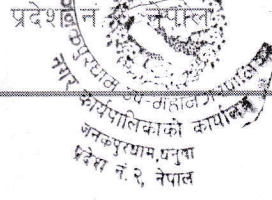 प्रदेश नं २ नेपाल
जनकपुरधाम उप-महानगरपालिका
नगर कार्यपालिकाको कार्यालय
जनकपुरधाम, धनुषा
प्रदेश नं. २, नेपाल